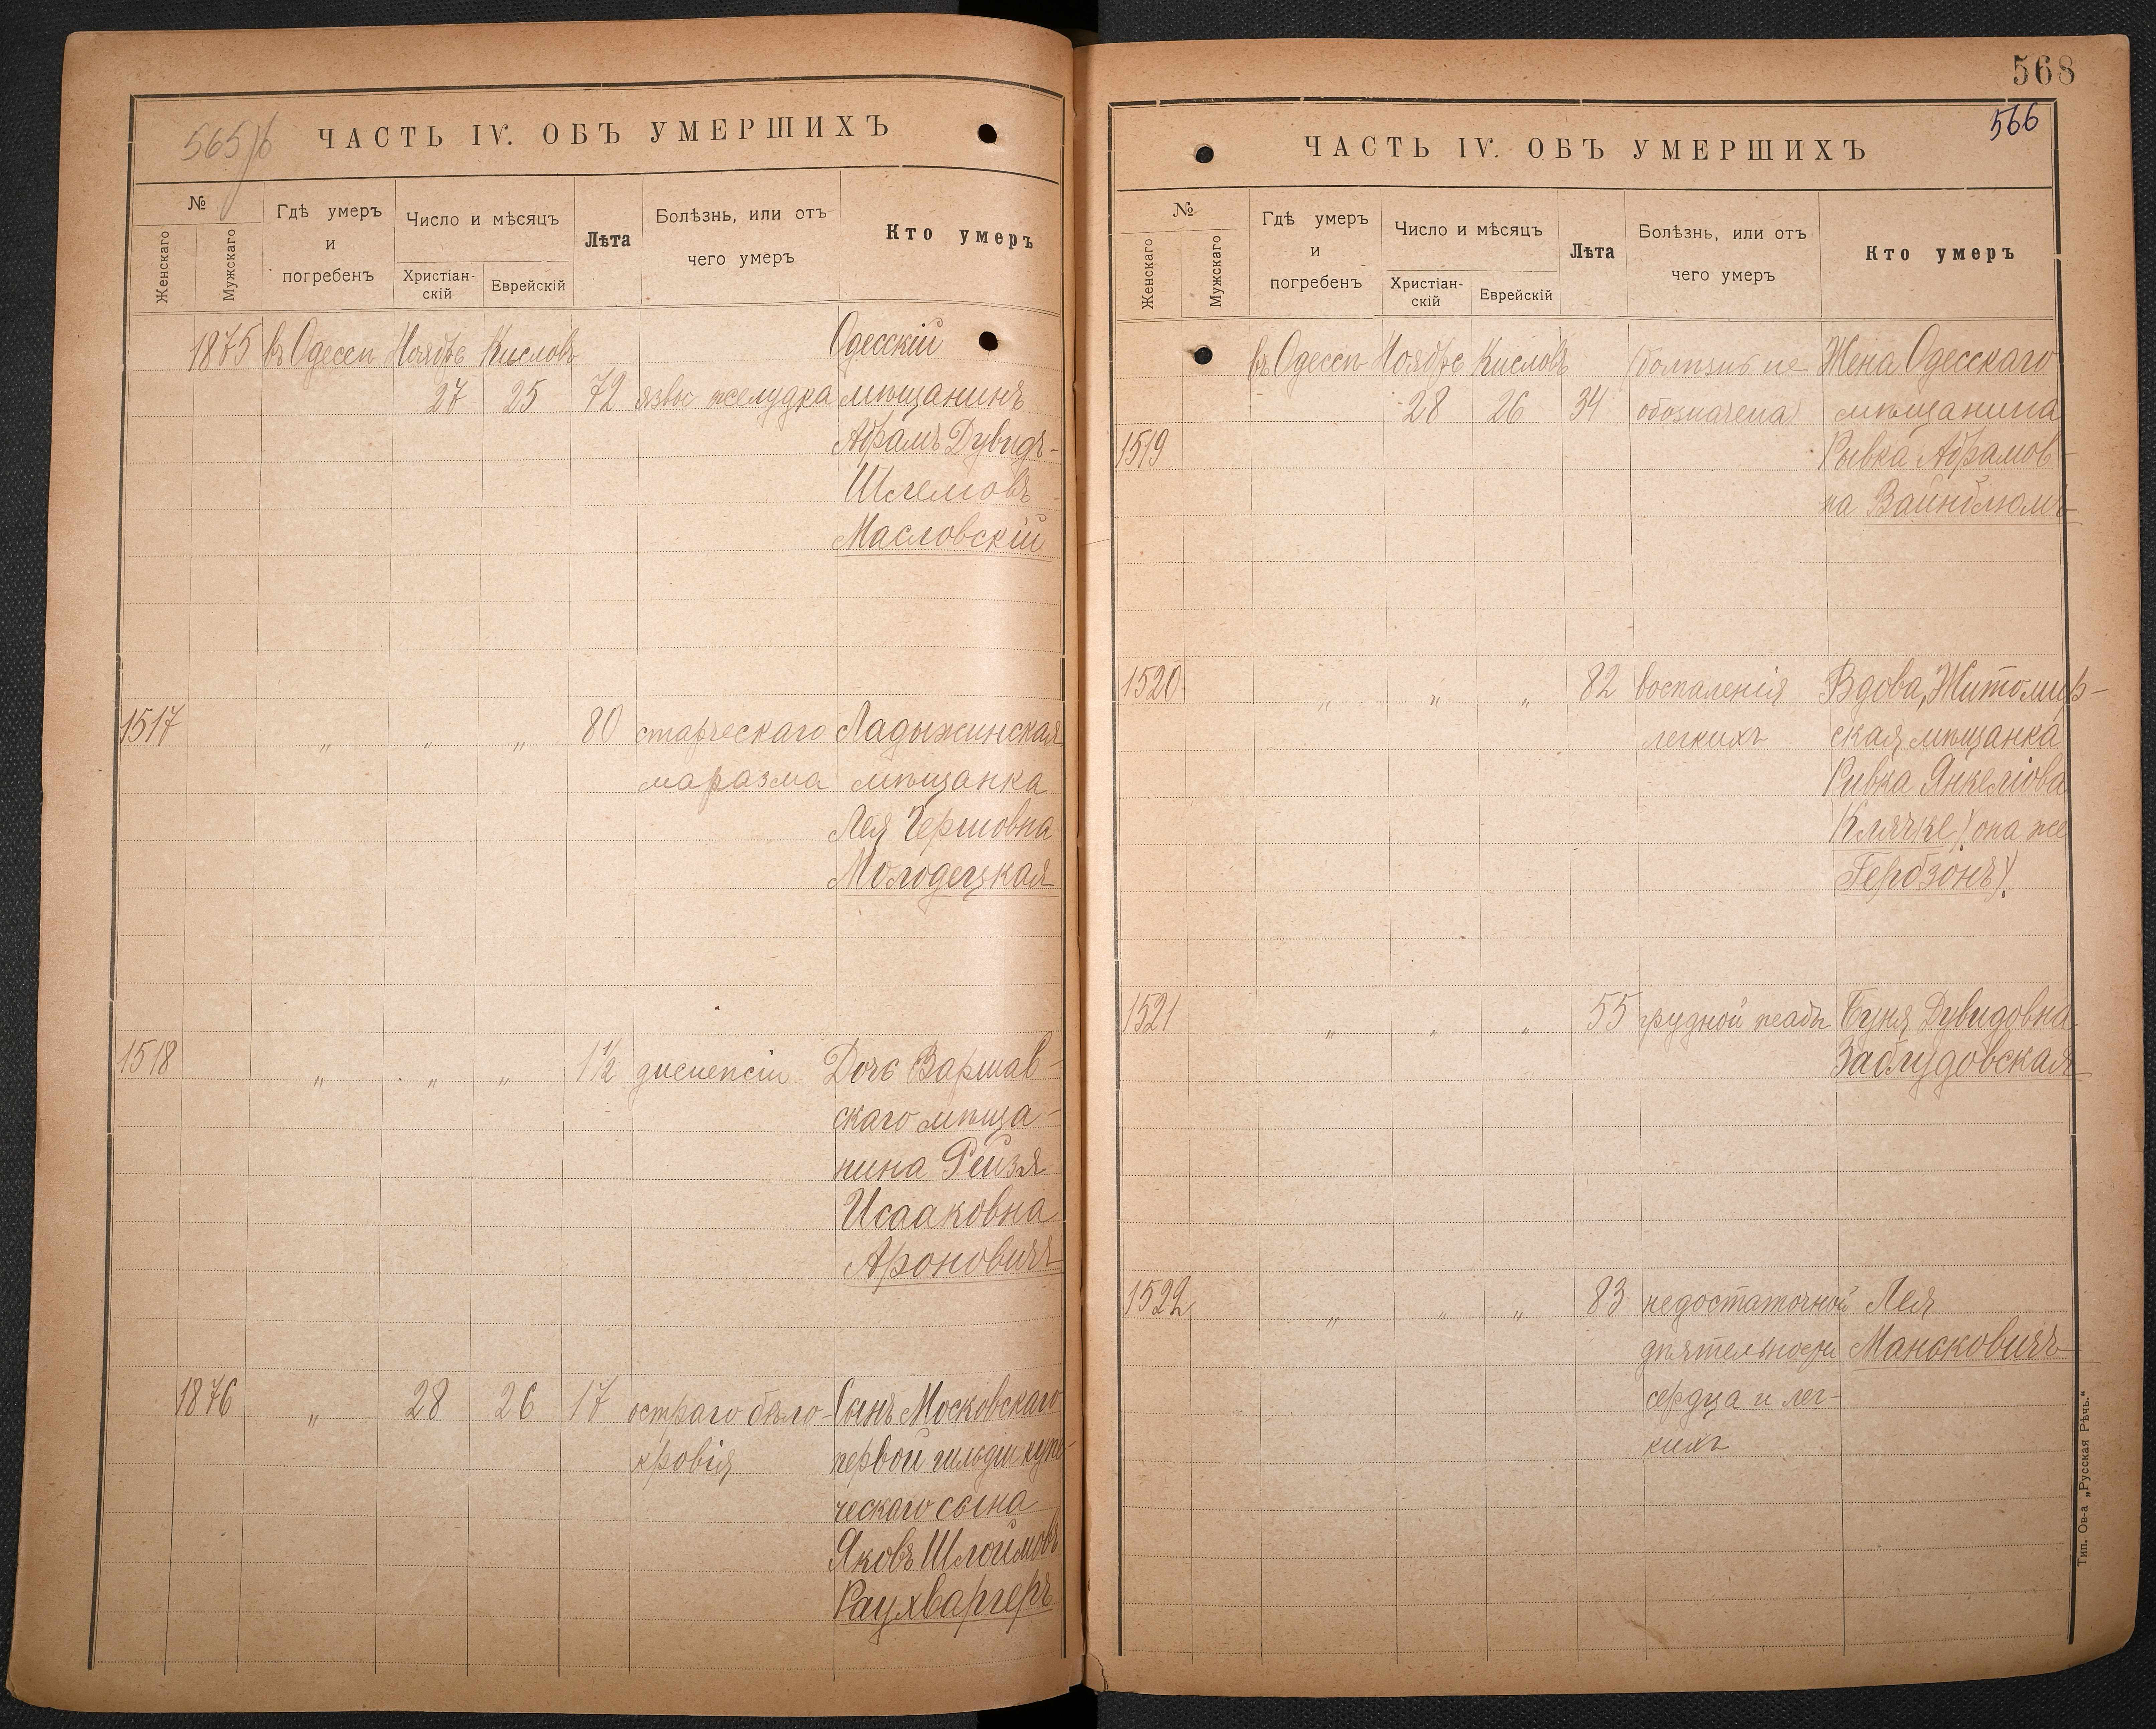 565/б
ЧАСТЬ IV. ОБЪ УМЕРШИХЪ
№
Женскаго
Мужскаго
Гдѣ умеръ
и
погребенъ
Число и мѣсяцъ
Христіан-
скій
Еврейскій
Лѣта
Болѣзнь, или отъ
чего умеръ
Кто умеръ
1875 въ Одессѣ Ноябрь Кисловъ Одесскій
27 25 72 язвы желудка мѣщанинъ
Абрамъ Дувидъ-
Шлемовъ
Масловскій
1517 „ „ „ 80 старческаго Ладыжинская
маразма мѣщанка
Лея Гершовна
Молодецкая
1518 „ „ „ 1½ диспепсіи Дочь Варшав-
скаго мѣща-
нина Рейзя
Исааковна
Ароновичъ
1876 „ 28 26 17 остраго бѣло- Сынъ Московскаго
кровія первой гильдіи купе-
ческаго сына
Яковъ Шлоимовъ
Раухваргеръ
568
566
ЧАСТЬ IV. ОБЪ УМЕРШИХЪ
№
Женскаго
Мужскаго
Гдѣ умеръ
и
погребенъ
Число и мѣсяцъ
Христіан-
скій
Еврейскій
Лѣта
Болѣзнь, или отъ
чего умеръ
Кто умеръ
въ Одессѣ Ноябрь Кисловъ (болѣзнь не Жена Одесскаго
28 26 34 обозначена) мѣщанина
1519 Рывка Абрамов-
на Вайнблюмъ
1520 „ „ „ 82 воспаленія Вдова, Житомир-
легкихъ ская мѣщанка
Ривка Янкеліова
Клячке (она же
Гербзонъ).
1521 „ „ „ 55 грудной жабы Буня Дувидовна
Заблудовская
1522 „ „ „ 83 недостаточной Лея
дѣятельности Маньковичъ
сердца и лег-
кихъ
Тип. Ов-а „Русская Рѣчь.“